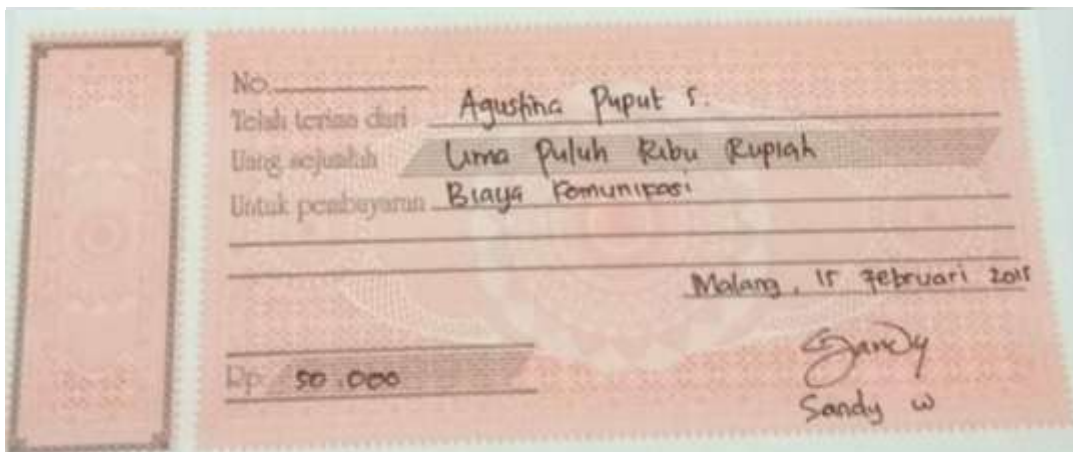 No.
Telah terima dari Agustina Puput S.
Uang sejumlah Lima Puluh Ribu Rupiah
Untuk pembayaran Biaya Komunikasi
Malang, 15 Februari 2015
Rp. 50.000
Sandy
Sandy W